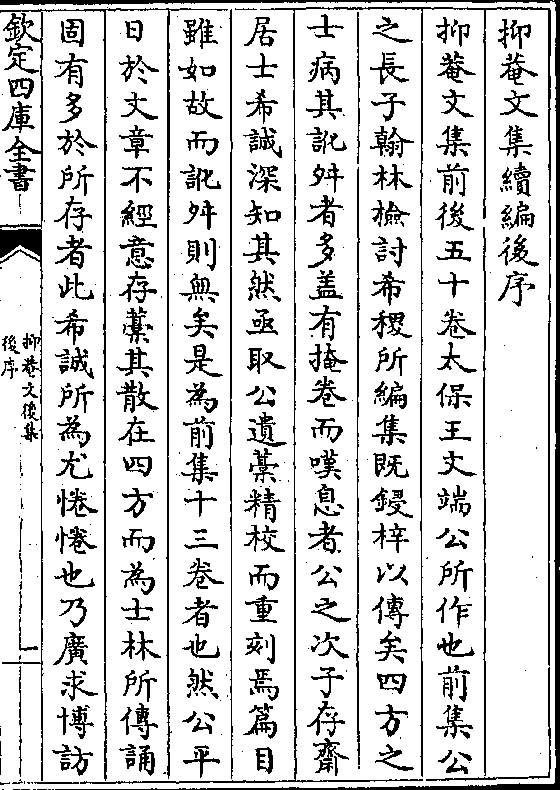 抑菴文集續編後序
抑菴文集前後五十卷太保王文端公所作也前集公
之長子翰林檢討希稷所編集既鋟梓以傳矣四方之
士病其訛舛者多盖有掩卷而嘆息者公之次子存齋
居士希誠深知其然亟取公遺藁精校而重刻焉篇目
雖如故而訛舛則無矣是為前集十三卷者也然公平
日於文章不經意存藁其散在四方而為士林所傳誦
固有多於所存者此希誠所為尤惓惓也乃廣求博訪
欽定四庫全書
抑菴文後集
後序
一